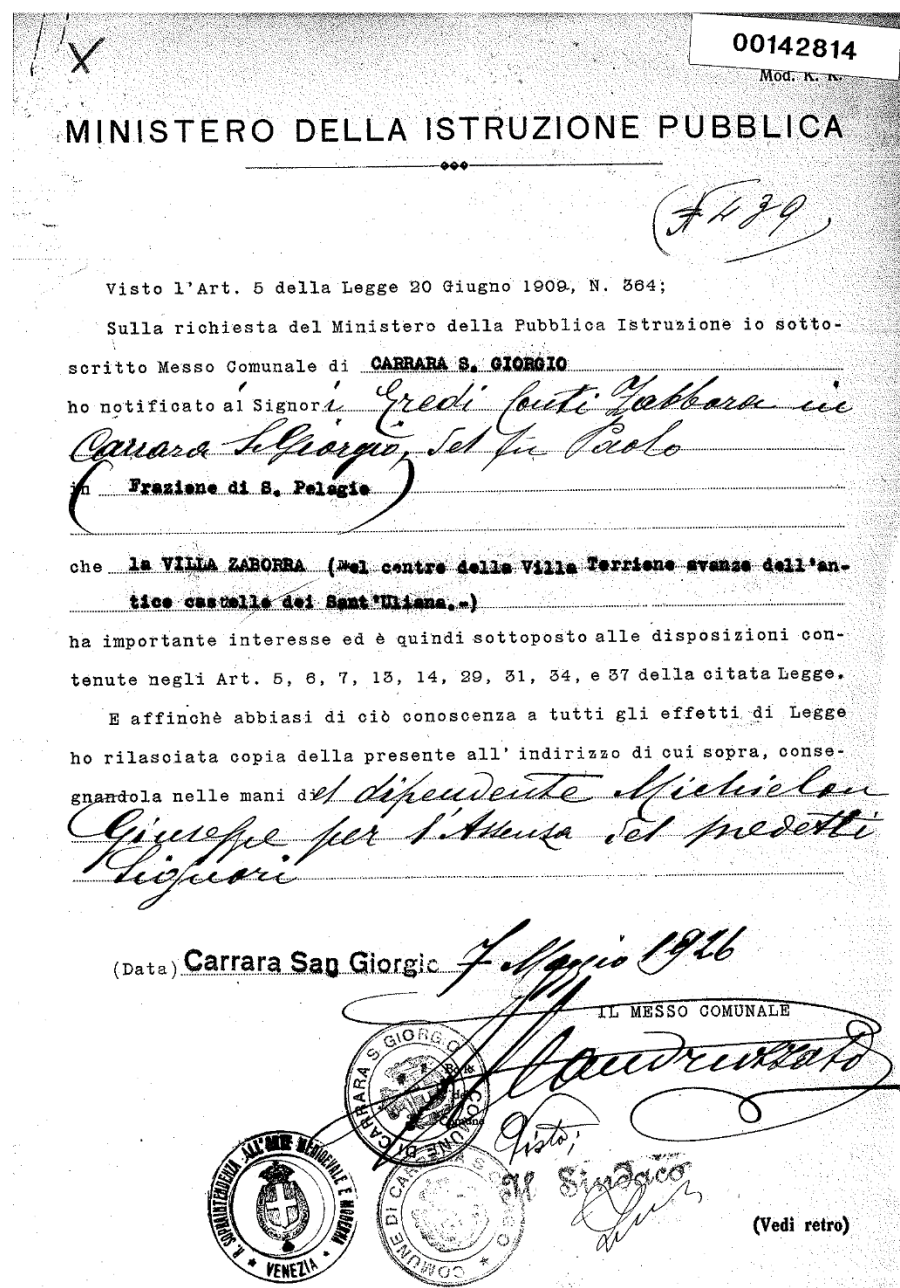 X
00142814
Mod. K. K.
MINISTERO DELLA ISTRUZIONE PUBBLICA
(N 439)
Visto l'Art. 5 della Legge 20 Giugno 1909, N. 364;
Sulla richiesta del Ministero della Pubblica Istruzione io sotto-
scritto Messo Comunale di CARRARA S. GIORGIO
ho notificato ai Signori Eredi Conti Zabborra in
Carrara S. Giorgio, del fu Paolo
in Frazione di S. Pelagio
che la VILLA ZABORRA (Nel centro della Villa Torrione avanzo dell'an-
tico castello dei Sant'Uliana.-)
ha importante interesse ed è quindi sottoposto alle disposizioni con-
tenute negli Art. 5, 6, 7, 13, 14, 29, 31, 34, e 37 della citata Legge.
E affinchè abbiasi di ciò conoscenza a tutti gli effetti di Legge
ho rilasciata copia della presente all' indirizzo di cui sopra, conse-
gnandola nelle mani del dipendente Michielon
Giuseppe per l'Assenza dei predetti
Signori
(Data) Carrara San Giorgio 7 Maggio 1926
IL MESSO COMUNALE
COMUNE DI CARRARA S. GIORGIO
Visto;
Il Sindaco
R. SOPRINTENDENZA ALL'ARTE MEDIOEVALE E MODERNA * VENEZIA *
COMUNE DI CARRARA S. GIORGIO
(Vedi retro)